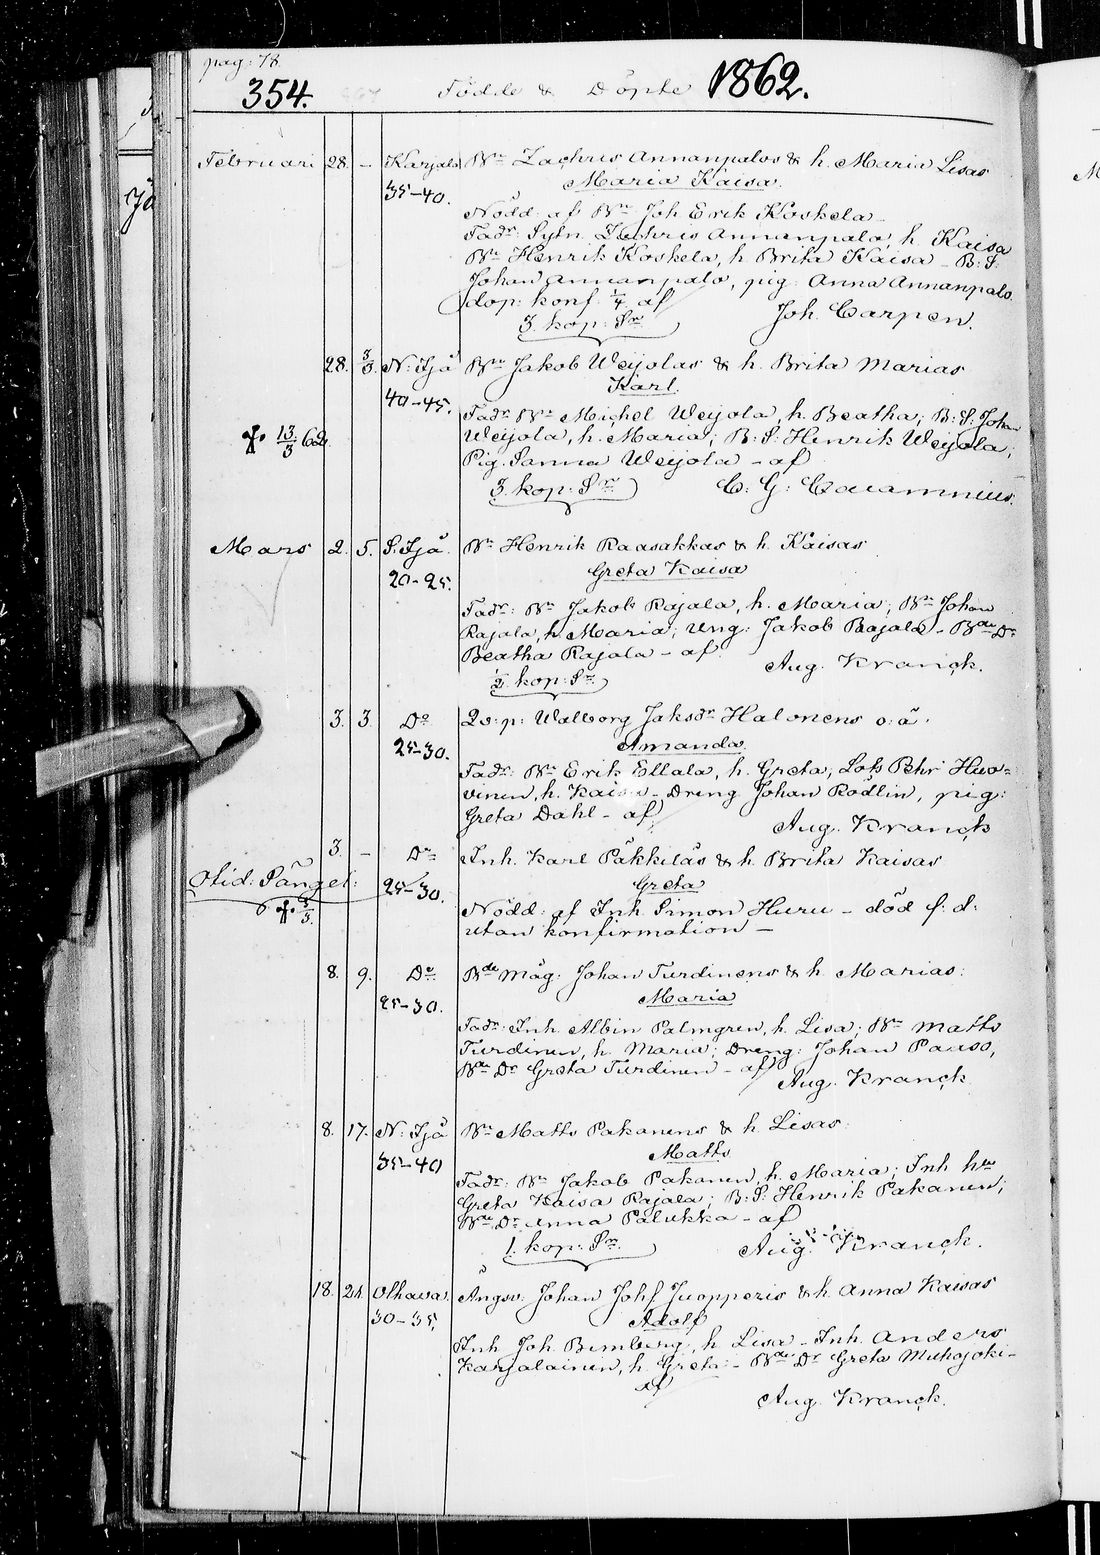 pag: 78
354. Födde & Döpte 1862.
Februari 28. – Karjala Bn Zachris Annanpalos & h. Maria Lisas
35–40. Maria Kaisa.
Nödd: af Bn Joh Erik Koskela –
Fadr: Sytn. Zachris Annanpala, h. Kaisa
Bn Henrik Koskela, h. Brita Kaisa – B: S:
Johan Annanpalo, pig: Anna Annanpalo.
dop: konf: 1/4 af
3. kop: Sr Joh. Carpen.
28. 3/3 N: Ijå Bn Jakob Weijolas & h. Brita Marias
40–45. Karl.
Fadr Bn Michel Weijola, h. Beatha; B: S: Johan
+ 13/3 62. Weijola, h. Maria; B: S: Henrik Weijola;
Pig. Sanna Weijola – af
3. kop: Sr C: G: Calamnius.
Mars 2. 5. S. Ijå. Bn Henrik Raasakkas & h. Kaisas
20–25. Greta Kaisa
Fadr: Bn Jakob Rajala, h. Maria; Bn Johan
Rajala, h. Maria; Ung: Jakob Rajala – Bde Dr
Beatha Rajala – af
Aug. Kranck.
2. kop: Sr
3. 3. Do Qv: p: Walborg Jaksdr Halonens o: ä.
25–30. Amanda.
Fadr: Bn Erik Ellala, h. Greta; Lots Pehr Huo=
vinen, h. Kaisa – Dreng Johan Rödlin, pig:
Greta Dahl – af
Aug. Kranck
3. – Do Inh. Karl Päkkiläs & h. Brita Kaisas
Otid: Sängel: 25–30. Greta
+ 3/3. Nödd: af Inh. Simon Huru – död s: d:
utan konfirmation –
8. 9. Do Bde Måg: Johan Turdinens & h. Marias:
25–30. Maria
Fadr: Inh Albin Palmgren, h. Lisa; Bn Matts
Turdinen, h. Maria; Dreng: Johan Paaso,
Bde Dr Greta Turdinen – af
Aug. Kranck
8. 17. N: Ijå Bn Matts Pakanens & h. Lisas:
35–40 Matts
Fadr: Bn Jakob Pakanen, h. Maria; Inh hu
Greta Kaisa Rajala; B: S: Henrik Pakanen;
Bde Dr Anna Palukka – af
1. kop: Sr. Aug. Kranck.
18. 24. Olhava. Ängsv: Johan Johs Juopperis & h. Anna Kaisas
30–35. Adolf
Inh Joh. Bemberg, h Lisa – Inh. Anders
Karjalainen, h. Greta – Bde Dr Greta Muhojoki –
af
Aug. Kranck.